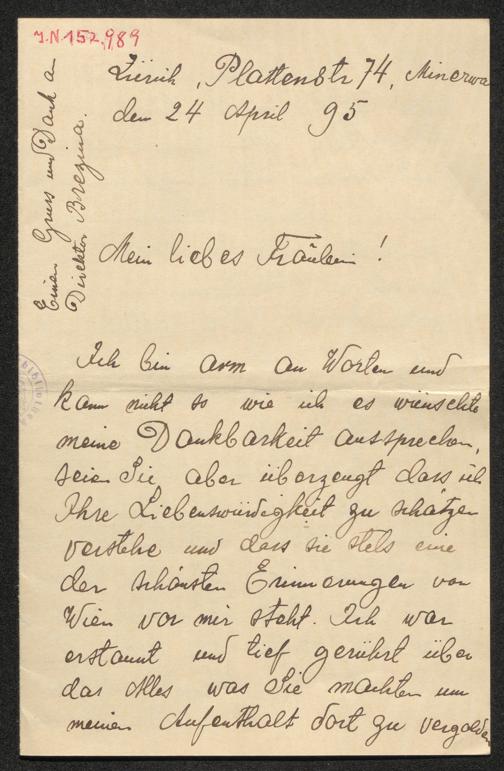 J.N. 152,989
Zürich, Plattenstr 74, Minerva
den 24 April 95
Einen Gruss und Dank an
Direktor Brezina.
Mein liebes Fräulein!
Ich bin arm an Worten und
kann nicht so wie ich es wünschte
meine Dankbarkeit aussprechen,
seien Sie aber überzeugt dass ich
Ihre Liebenswürdigkeit zu schätzen
verstehe und dass sie stets eine
der schönsten Erinnerungen von
Wien vor mir steht. Ich war
erstaunt und tief gerührt über
das Alles was Sie machten um
meinen Aufenthalt dort zu vergolden